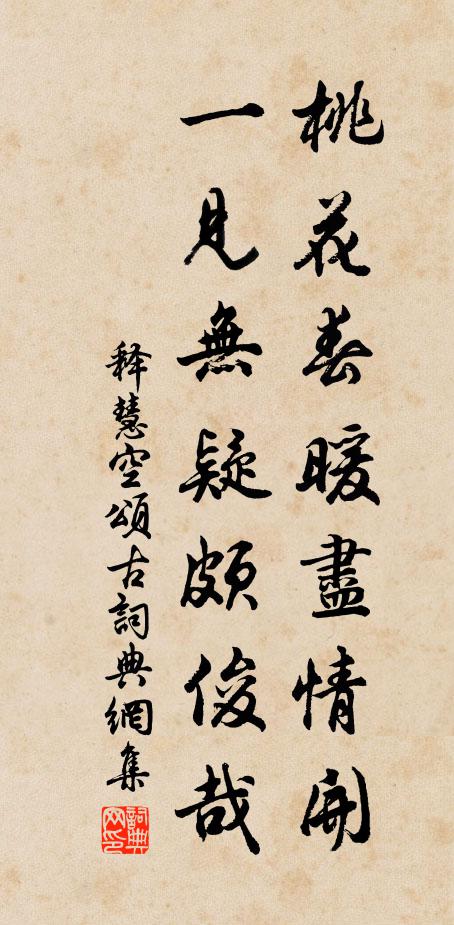 桃花春暖盡情開
一見無疑頗俊哉
释慧空頌古詞典網集
詞典
网印